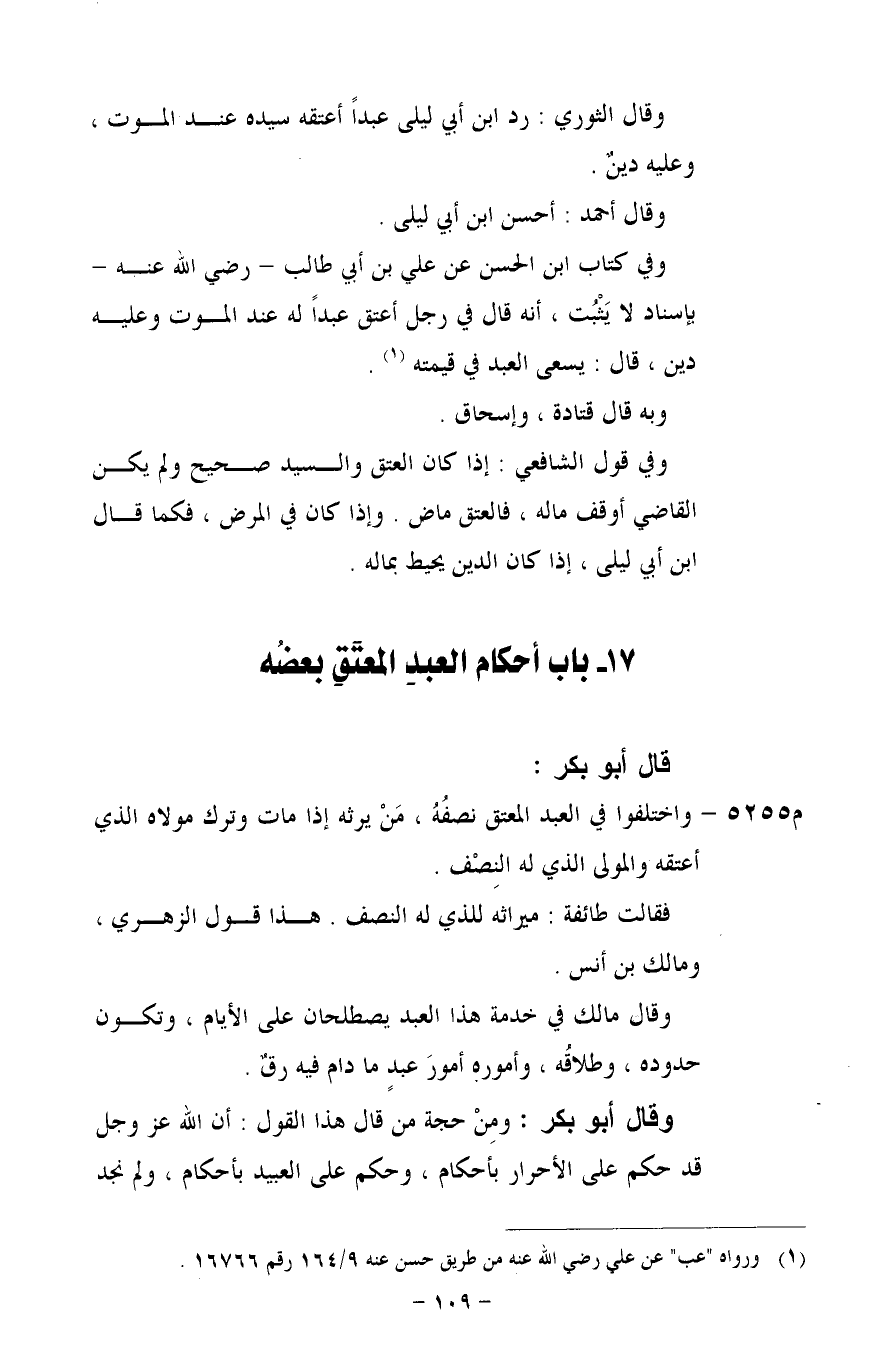 وقال الثوري : رد ابن أبي ليلى عبداً أعتقه سيده عنـــد المـــوت ،
وعليه دينٌ .
وقال أحمد : أحسن ابن أبي ليلى .
وفي كتاب ابن الحسن عن علي بن أبي طالب – رضي الله عنـــه –
بإسناد لا يَثْبُت ، أنه قال في رجل أعتق عبداً له عند المـــوت وعليـــه
دين ، قال : يسعى العبد في قيمته (١) .
وبه قال قتادة ، وإسحاق .
وفي قول الشافعي : إذا كان العتق والـــسيد صـــحيح ولم يكـــن
القاضي أوقف ماله ، فالعتق ماض . وإذا كان في المرض ، فكما قـــال
ابن أبي ليلى ، إذا كان الدين يحيط بماله .
١٧ـ باب أحكام العبدِ المعتَقِ بعضُه
قال أبو بكر :
م٥٢٥٥ – واختلفوا في العبد المعتق نصفُهُ ، مَنْ يرثه إذا مات وترك مولاه الذي
أعتقه والمولى الذي له النِصْف .
فقالت طائفة : ميراثه للذي له النصف . هـــذا قـــول الزهـــري ،
ومالك بن أنس .
وقال مالك في خدمة هذا العبد يصطلحان على الأيام ، وتكـــون
حدوده ، وطلاقُه ، وأموره أمورَ عبدٍ ما دام فيه رقٌ .
وقال أبو بكر : ومِنْ حجة من قال هذا القول : أن الله عز وجل
قد حكم على الأحرار بأحكام ، وحكم على العبيد بأحكام ، ولم نجد
(١) ورواه "عب" عن علي رضي الله عنه من طريق حسن عنه ١٦٤/٩ رقم ١٦٧٦٦ .
– ١٠٩ –